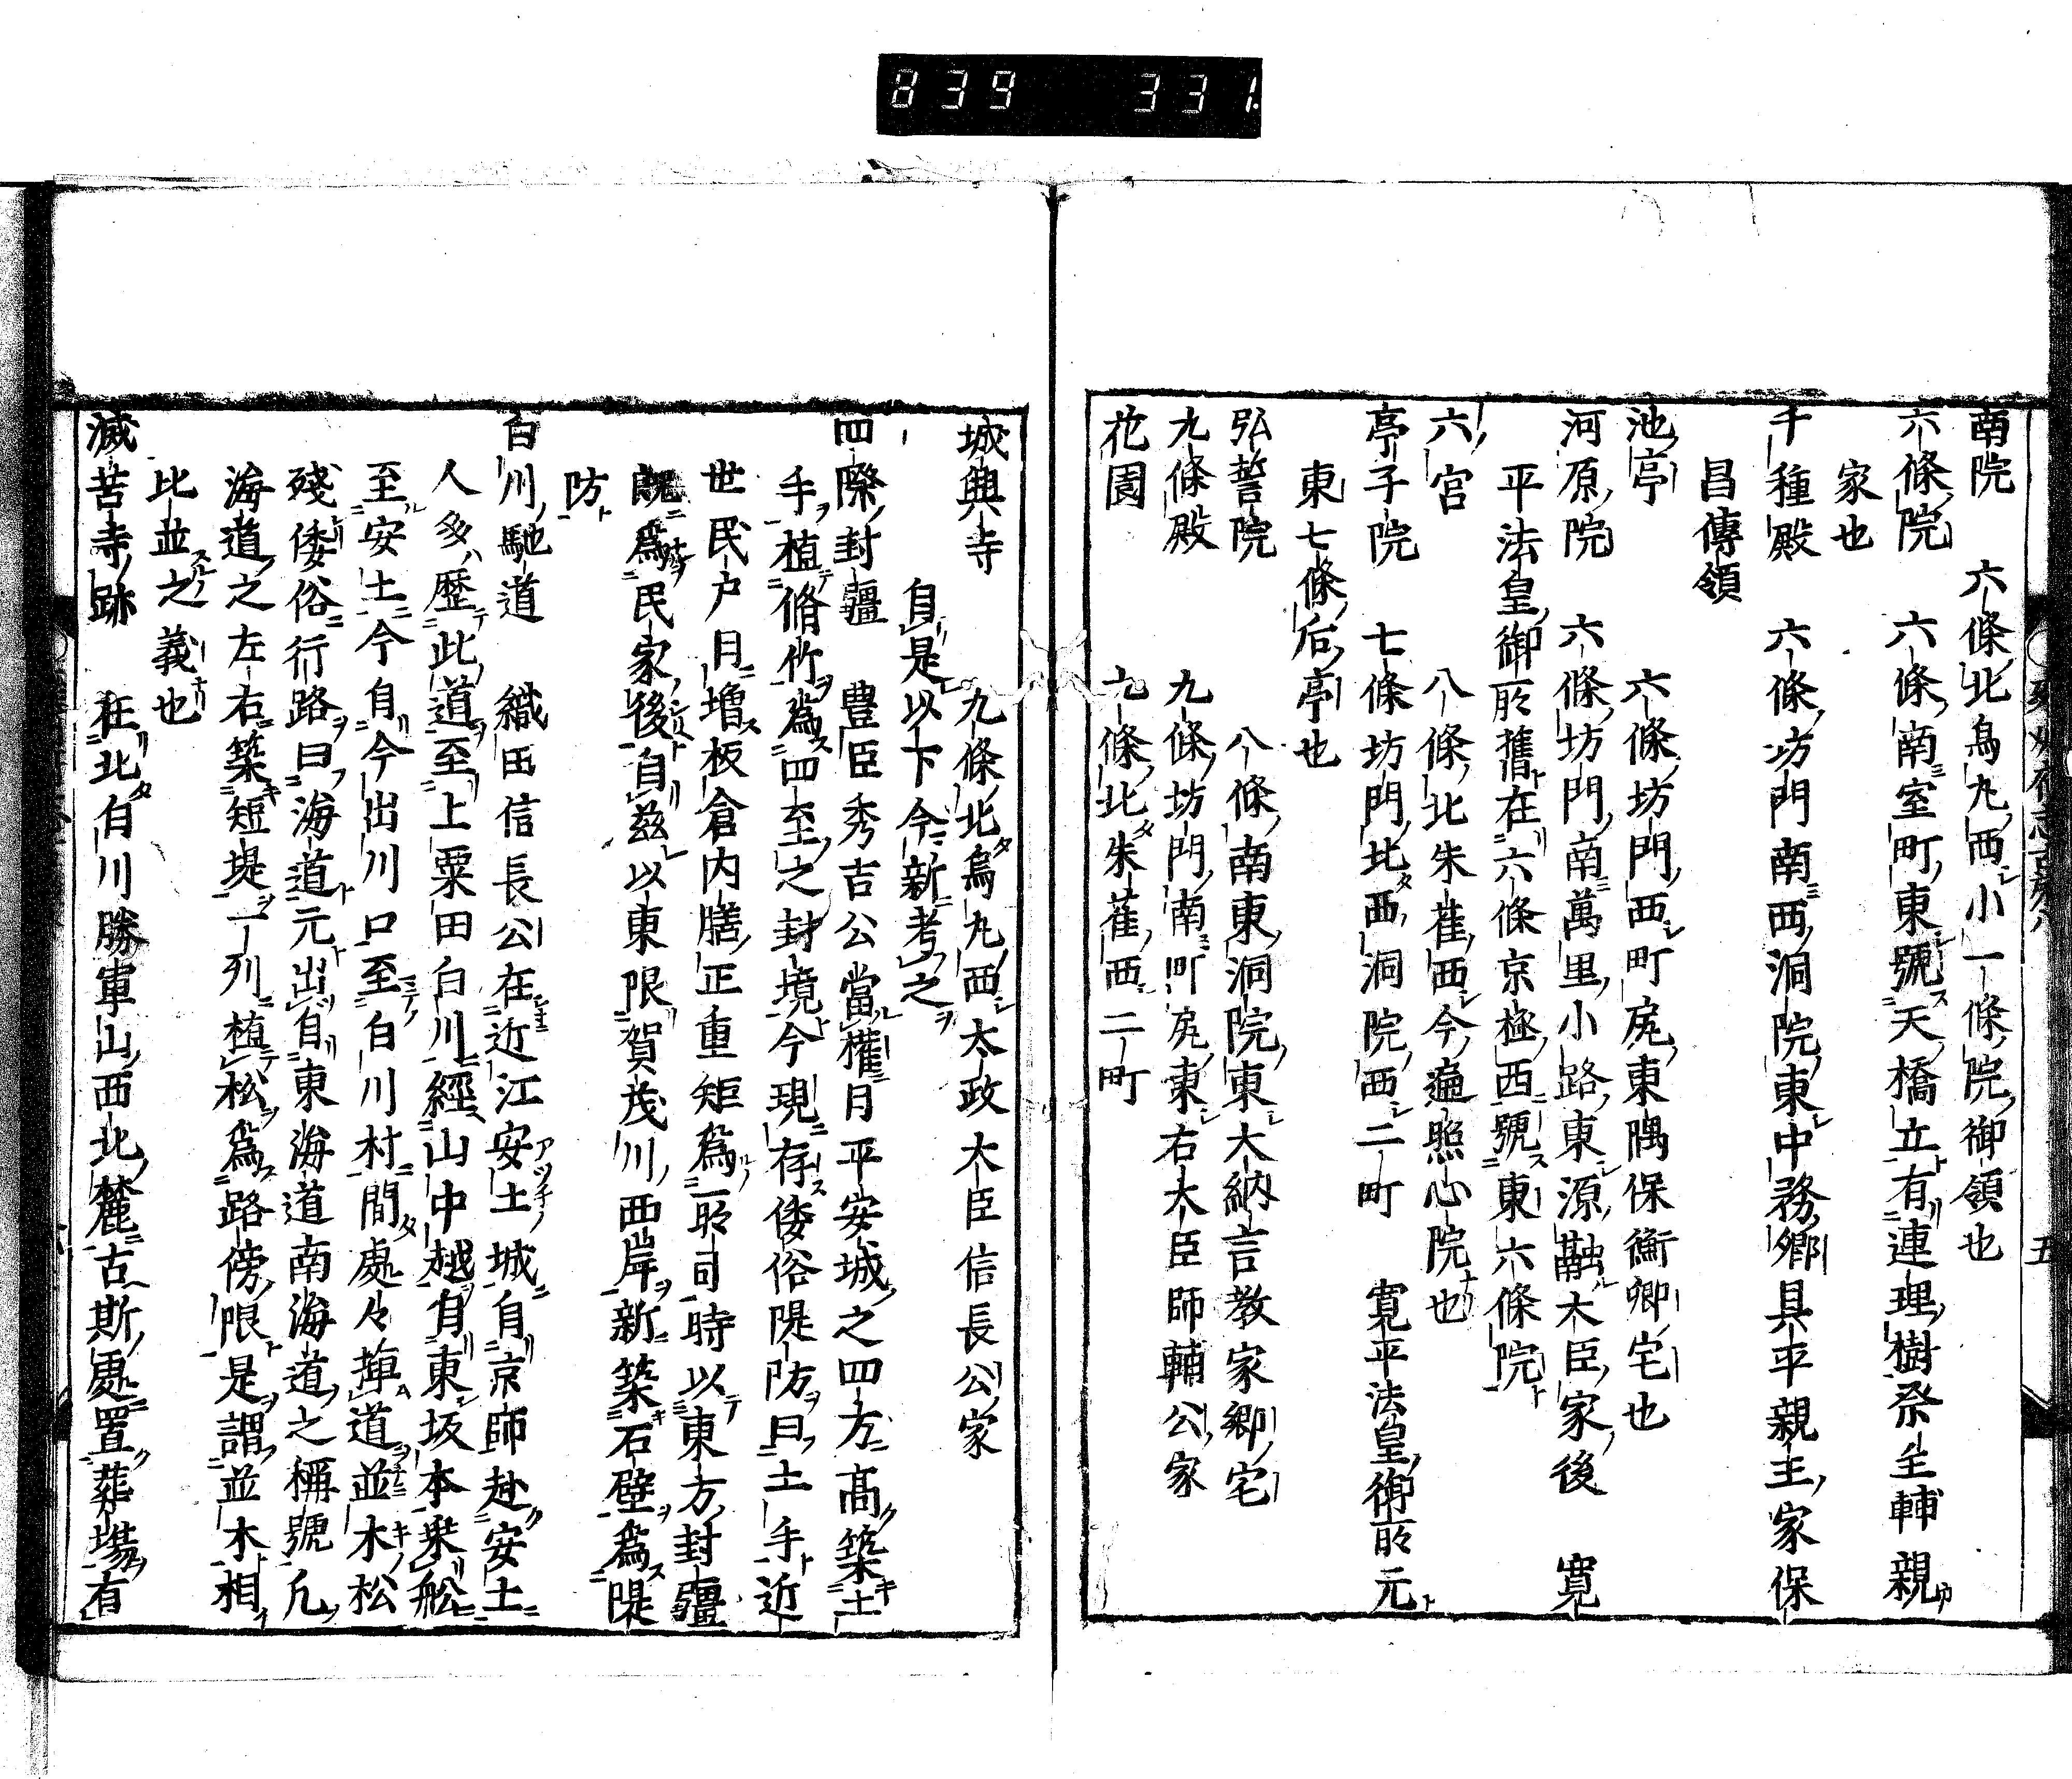 839 331.
南院 六條北烏丸西小一條院御領也
六條院 六條南室町東號天橋立有連理樹祭主輔親
家也
千種殿 六條坊門南西洞院東中務卿具平親王家保
昌傳領
池亭 六條坊門西町尻東隅保衡卿宅也
河原院 六條坊門南萬里小路東源融大臣家後 寛
平法皇御所舊在六條京極西號東六條院
六宮 八條北朱雀西今遍照心院也
亭子院 七條坊門北西洞院西二町 寛平法皇御所元
東七條后亭也
弘誓院 八條南東洞院東大納言教家卿宅
九條殿 九條坊門南町尻東右大臣師輔公家
花園 九條北朱雀西二町
城興寺 九條北烏丸西太政大臣信長公家
自是以下今新考之
四際封疆 豊臣秀吉公當權日平安城之四方高築土
手植脩竹爲四至之封境今現存倭俗隄防曰土手近
世民户日増板倉内膳正重矩爲所司時以東方封疆
既爲民家後自茲以東限賀茂川西岸新築石壁爲隄
防
白川馳道 織田信長公在近江安土城自京師赴安土
人多歷此道至上粟田白川經山中越自東坂本乗舩
至安土今自今出川口至白川村間處々挿道並木松
殘倭俗行路曰海道元出自東海道南海道之稱號凡
海道之左右築短堤一列植松爲路傍限是謂並木相
比並之義也
滅苦寺跡 在北白川勝軍山西北麓古斯處置葬場有